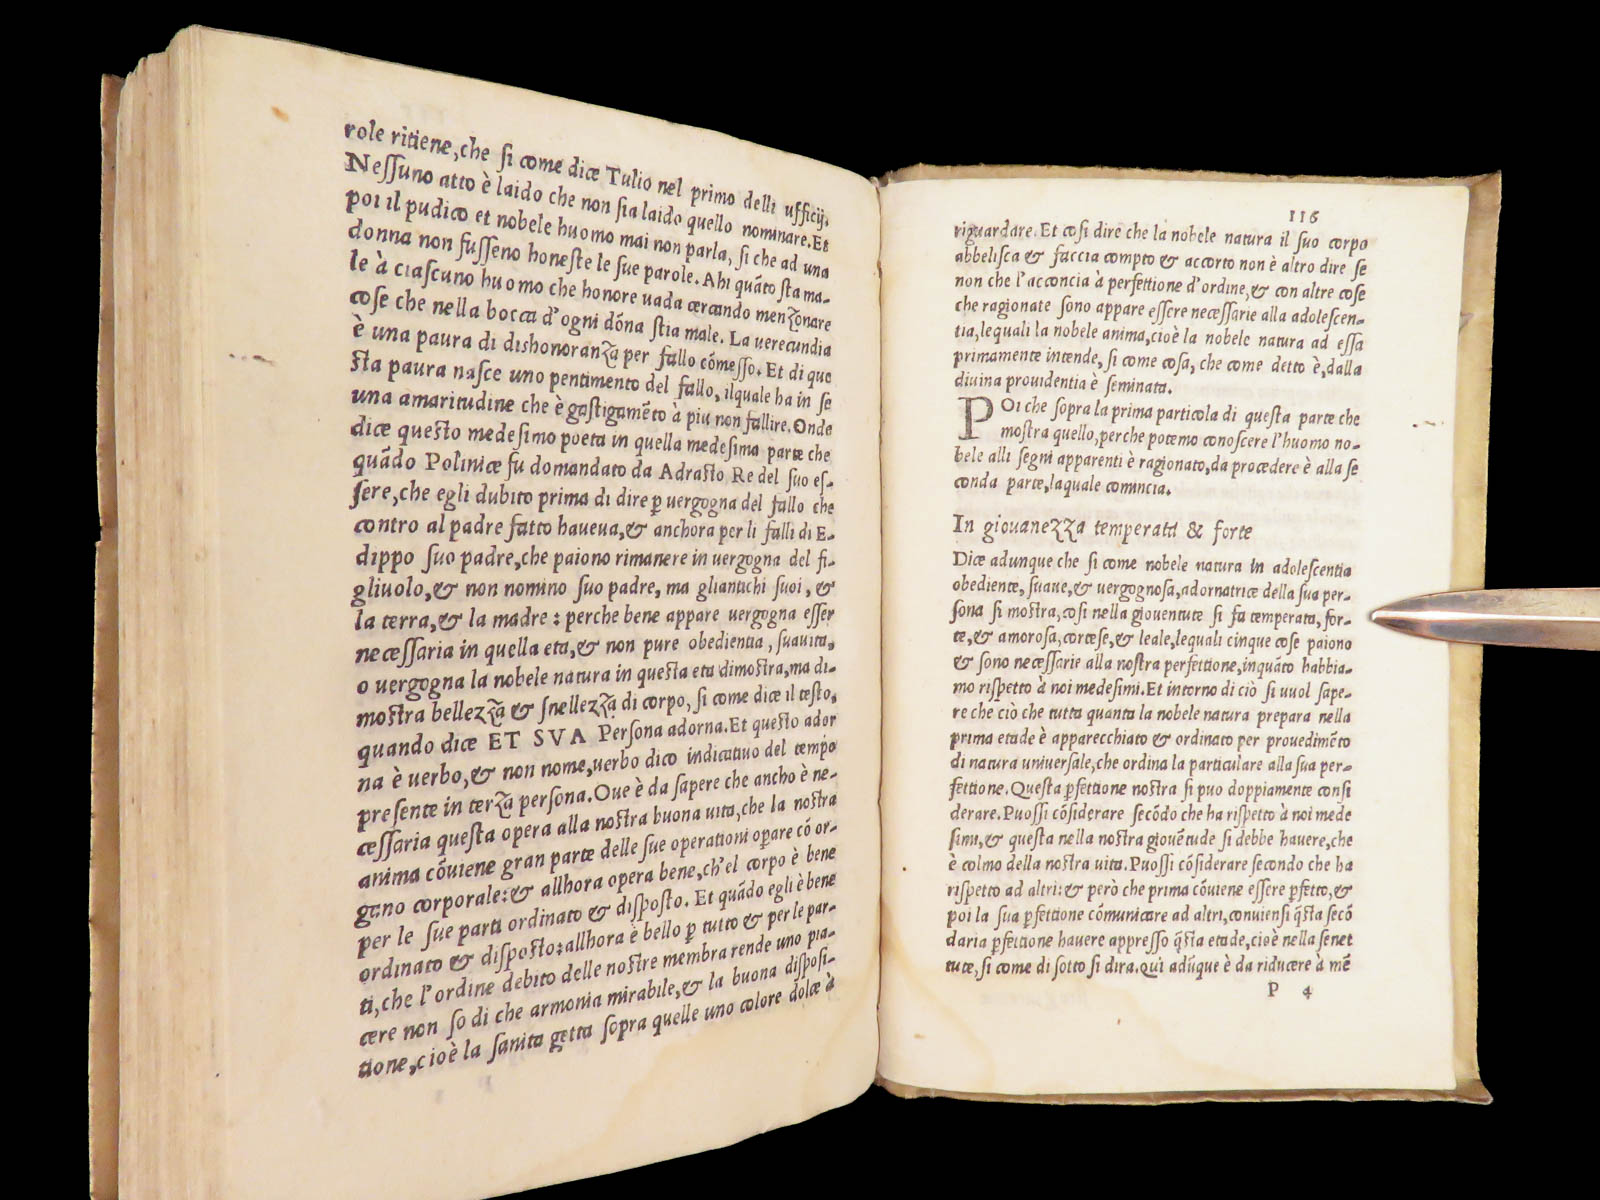 role ritiene,che ſi come dice Tulio nel primo delli ufficij.
Neſſuno atto è laido che non ſia laido quello nominare.Et
poi il pudico et nobele huomo mai non parla, ſi che ad una
donna non fuſſeno honeſte le ſue parole.Ahi quãto ſta ma-
le à ciaſcuno huomo che honore uada cercando menzonare
coſe che nella bocca d'ogni dõna ſtia male. La uerecundia
è una paura di dishonoranza per fallo cõmeſſo. Et di que
ſta paura naſce uno pentimento del fallo, ilquale ha in ſe
una amaritudine che è gaſtigamẽto à piu non fallire. Onde
dice queſto medeſimo poeta in quella medeſima parte che
quãdo Polinice fu domandato da Adraſto Re del ſuo eſ-
ſere,che egli dubito prima di dire ꝑ uergogna del fallo che
contro al padre fatto haueua,& anchora per li falli di E-
dippo ſuo padre,che paiono rimanere in uergogna del fi-
gliuolo,& non nomino ſuo padre, ma gliantichi ſuoi, &
la terra,& la madre: perche bene appare uergogna eſſer
neceſſaria in quella eta,& non pure obedientia, ſuauita,
o uergogna la nobele natura in queſta eta dimoſtra,ma di-
moſtra bellezza & ſnellezza di corpo, ſi come dice il teſto,
quando dice ET SVA Perſona adorna.Et queſto ador
na è uerbo,& non nome,uerbo dico indicatiuo del tempo
preſente in terza perſona.Oue è da ſapere che ancho è ne-
ceſſaria queſta opera alla noſtra buona uita,che la noſtra
anima cõuiene gran parte delle ſue operationi oꝑare cõ or-
gano corporale:& allhora opera bene,ch'el corpo è bene
per le ſue parti ordinato & diſpoſto. Et quãdo egli è bene
ordinato & diſpoſto:allhora è bello ꝑ tutto & per le par-
ti,che l'ordine debito delle noſtre membra rende uno pia-
cere non ſo di che armonia mirabile,& la buona diſpoſi-
tione,cioè la ſanita getta ſopra quelle uno colore dolce à
116
riguardare. Et coſi dire che la nobele natura il ſuo corpo
abbeliſca & faccia compto & accorto non è altro dire ſe
non che l'acconcia à perfettione d'ordine,& con altre coſe
che ragionate ſono appare eſſere neceſſarie alla adoleſcen-
tia,lequali la nobele anima,cioè la nobele natura ad eſſa
primamente intende, ſi come coſa, che come detto è,dalla
diuina prouidentia è ſeminata.
POi che ſopra la prima particola di queſta parte che
moſtra quello,perche potemo conoſcere l'huomo no-
bele alli ſegni apparenti è ragionato,da procedere è alla ſe
conda parte,laquale comincia.
In giouanezza temperata & forte
Dice adunque che ſi come nobele natura in adoleſcentia
obediente, ſuaue,& uergognoſa,adornatrice della ſua per-
ſona ſi moſtra,coſi nella giouentute ſi fa temperata, for-
te,& amoroſa,corteſe,& leale,lequali cinque coſe paiono
& ſono neceſſarie alla noſtra perfettione,inquãto habbia-
mo riſpetto à noi medeſimi.Et intorno di ciò ſi uuol ſape-
re che ciò che tutta quanta la nobele natura prepara nella
prima etade è apparecchiato & ordinato per prouedimẽto
di natura uniuerſale,che ordina la particulare alla ſua per-
fettione. Queſta ꝑfettione noſtra ſi puo doppiamente conſi
derare. Puoſſi cõſiderare ſecõdo che ha riſpetto à noi mede
ſimi,& queſta nella noſtra giouẽtude ſi debbe hauere,che
è colmo della noſtra uita. Puoſſi cõſiderare ſecondo che ha
riſpetto ad altri:& però che prima cõuiene eſſere ꝑfetto,&
poi la ſua ꝑfettione cõmunicare ad altri,conuienſi q̃ſta ſecõ
daria ꝑfettione hauere appreſſo q̃ſta etade,cioè nella ſenet
tute, ſi come di ſotto ſi dira.Qui adũque è da riducere à mẽ
P 4